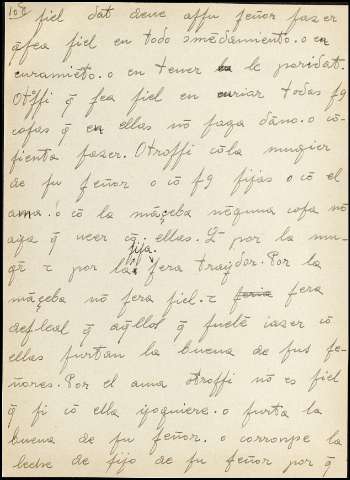 fiel dat deue affu feñor fazer
q̄ fea fiel en todo mādamiento. o en
curamiēto. o en tener le poridat.
Otoffi q̄ fea fiel en uriar todas fg
cofas q̄ en ellas nō faga daño. o cō-
fienta fazer. Otroffi cōla mugier
de fu feñor o cō fg fijas o cō el
ama. o cō la māçeba nōguna cofa nō
aya q̄ ueer cō ellas. por la mu-
gr̄ τ por la fija fera traydor. Por la
māçeba nō fera fiel. τ fera
defleal q̄ aq̄llos q̄ fuelē iazer cō
ellas furtan la buena de fus fe-
ñores. Por el ama otroffi nō es fiel
q̄ fi cō ella yoguiere. o furta la
buena de fu feñor. o corronpe la
leche de fijo de fu feñor por q̄